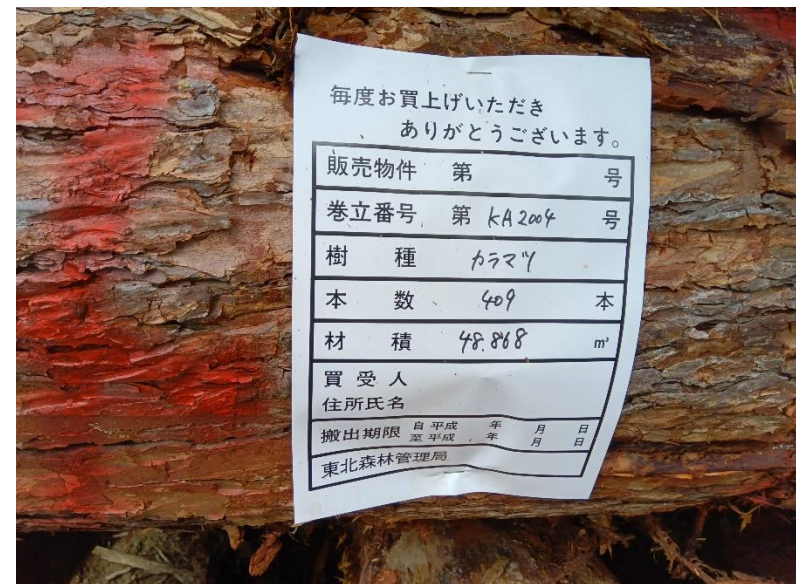 毎度お買上げいただき
ありがとうございます。
販売物件 第 号
巻立番号 第 KA2004 号
樹種 カラマツ
本数 409 本
材積 48.868 m³
買受人
住所氏名
搬出期限 自平成 年 月 日
至平成 年 月 日
東北森林管理局